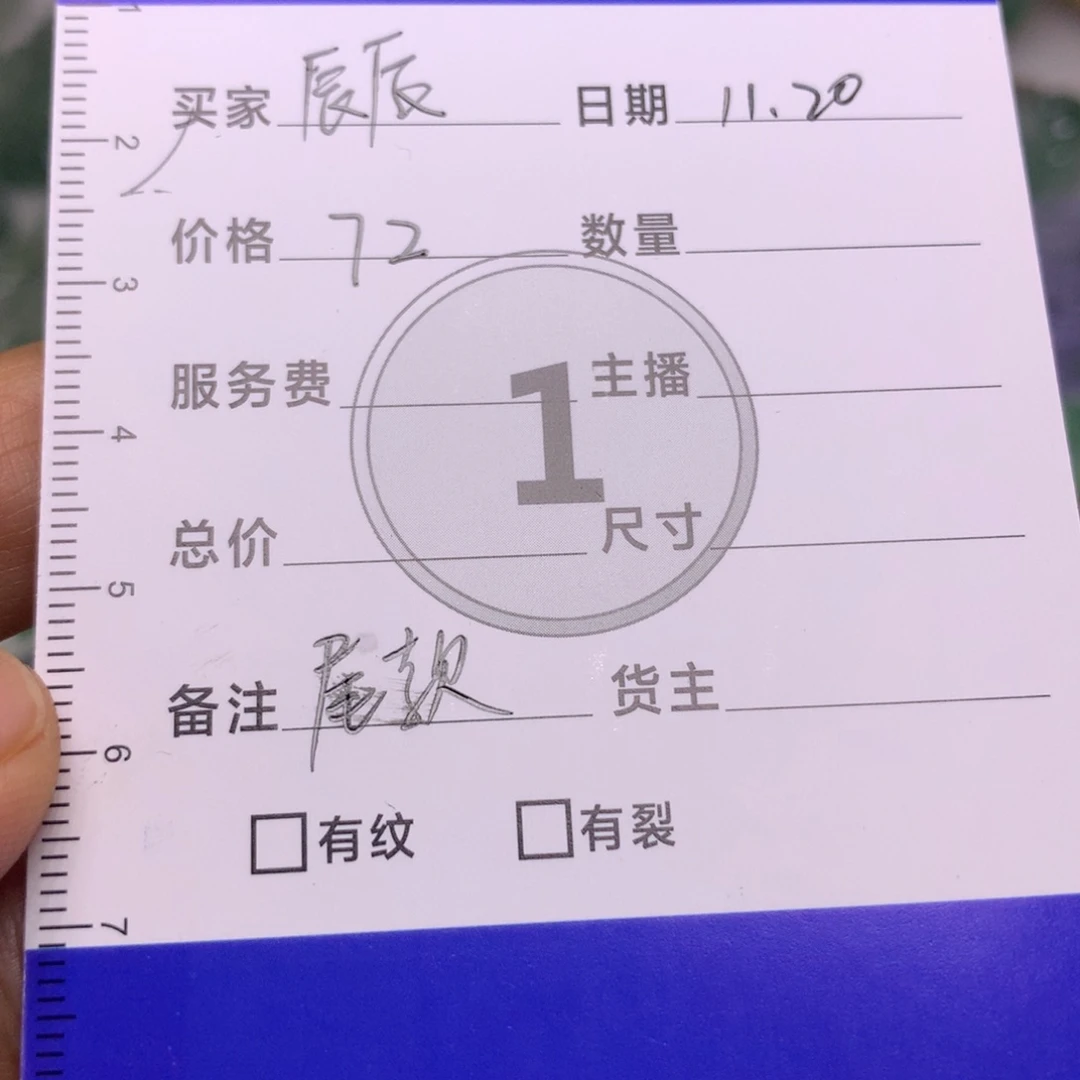 买家 辰辰 日期 11.20
价格 72 数量
服务费 主播
1
总价 尺寸
备注 尾款 货主
有纹 有裂
1
2
3
4
5
6
7